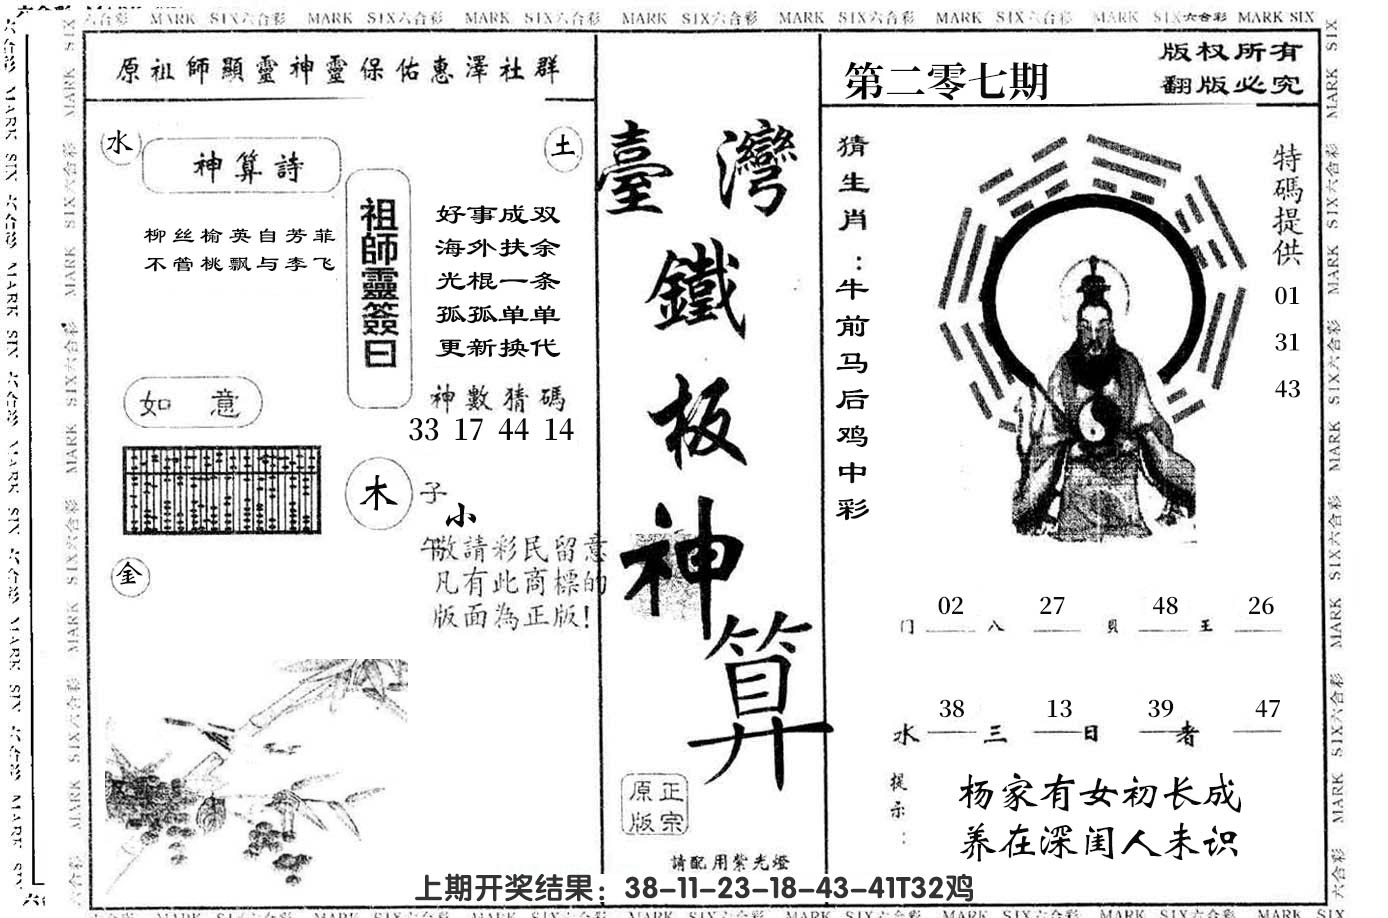 MARK SIX六合彩 MARK SIX六合彩 MARK SIX六合彩 MARK SIX六合彩 MARK SIX六合彩 MARK SIX六合彩 MARK SIX六合彩 MARK SIX
原祖師顯靈神靈保佑惠澤社群
水
神算詩
土
柳丝榆英自芳菲
不管桃飘与李飞
祖師靈簽曰
好事成双
海外扶余
光棍一条
孤孤单单
更新换代
神數猜碼
33 17 44 14
如 意
木
子
小
午
敬請彩民留意
凡有此商標的
版面為正版!
金
臺灣
鐵
板
神
算
正宗
原版
請配用紫光燈
第二零七期
版权所有
翻版必究
猜生肖:牛前马后鸡中彩
特碼提供
01
31
43
门 02 八 27 貝 48 王 26
水 38 三 13 日 39 者 47
提示:
杨家有女初长成
养在深闺人未识
上期开奖结果：38-11-23-18-43-41T32鸡